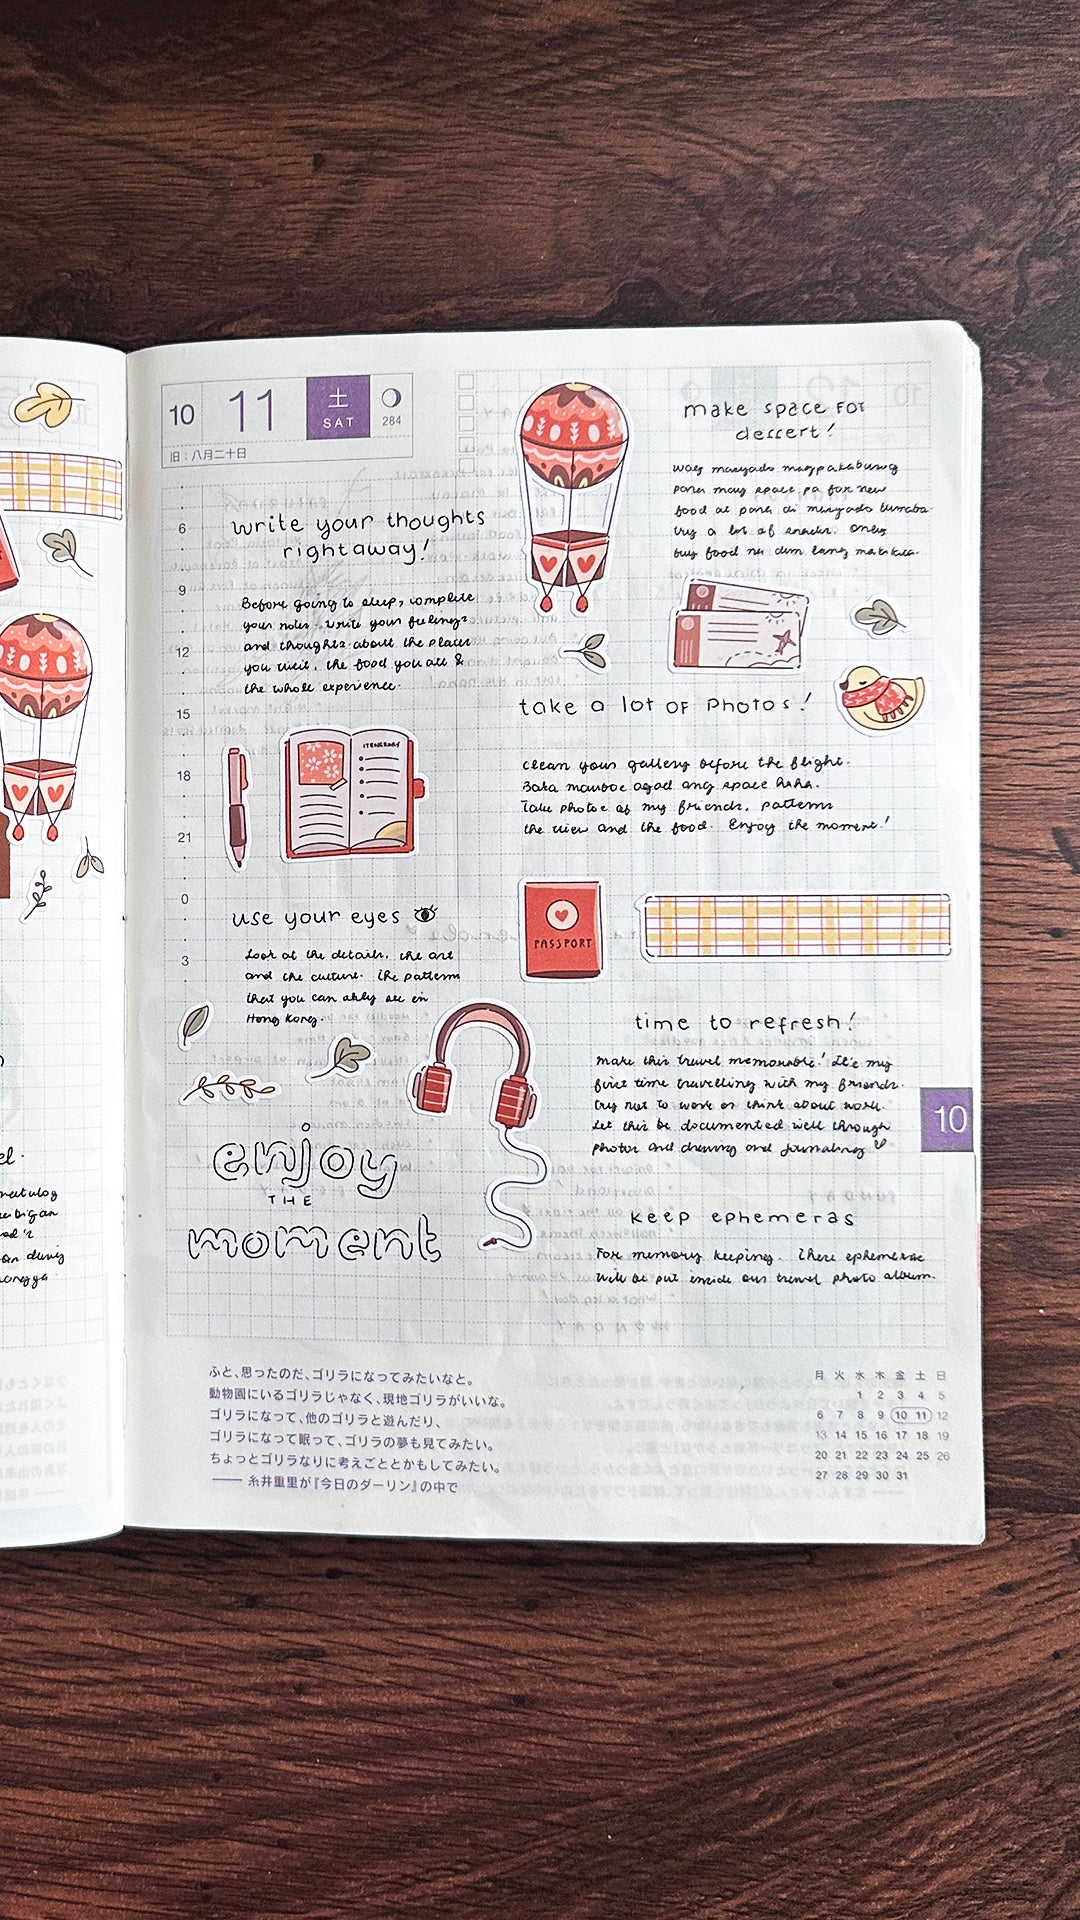 10 11 土 SAT 284
旧：八月二十日
write your thoughts
right away!
Before going to sleep, complete
your notes. Write your feelings
and thoughts about the places
you visit, the food you ate &
the whole experience.
6
9
12
15
18
21
0
3
ITENERARY
use your eyes
Look at the details, the art
and the culture. The patterns
that you can only see in
Hong Kong.
enjoy
THE
moment
make space for
dessert!
wag masyado magpakabusog
para may space pa for new
food at para di masyado
try a lot of snacks. Only
buy food na dun lang makikita.
take a lot of photos!
Clean your gallery before the flight.
Baka maubos agad ang space haha.
Take photos of my friends, patterns
the view and the food. Enjoy the moment!
PASSPORT
time to refresh!
Make this travel memorable! It's my
first time travelling with my friends.
Try not to work or think about work.
Let this be documented well through
photos and drawing and journaling
10
keep ephemeras
For memory keeping. These ephemeras
will be put inside our travel photo album.
ふと、思ったのだ、ゴリラになってみたいなと。
動物園にいるゴリラじゃなく、現地ゴリラがいいな。
ゴリラになって、他のゴリラと遊んだり、
ゴリラになって眠って、ゴリラの夢も見てみたい。
ちょっとゴリラなりに考えごととかもしてみたい。
―― 糸井重里が『今日のダーリン』の中で
月 火 水 木 金 土 日
1 2 3 4 5
6 7 8 9 10 11 12
13 14 15 16 17 18 19
20 21 22 23 24 25 26
27 28 29 30 31